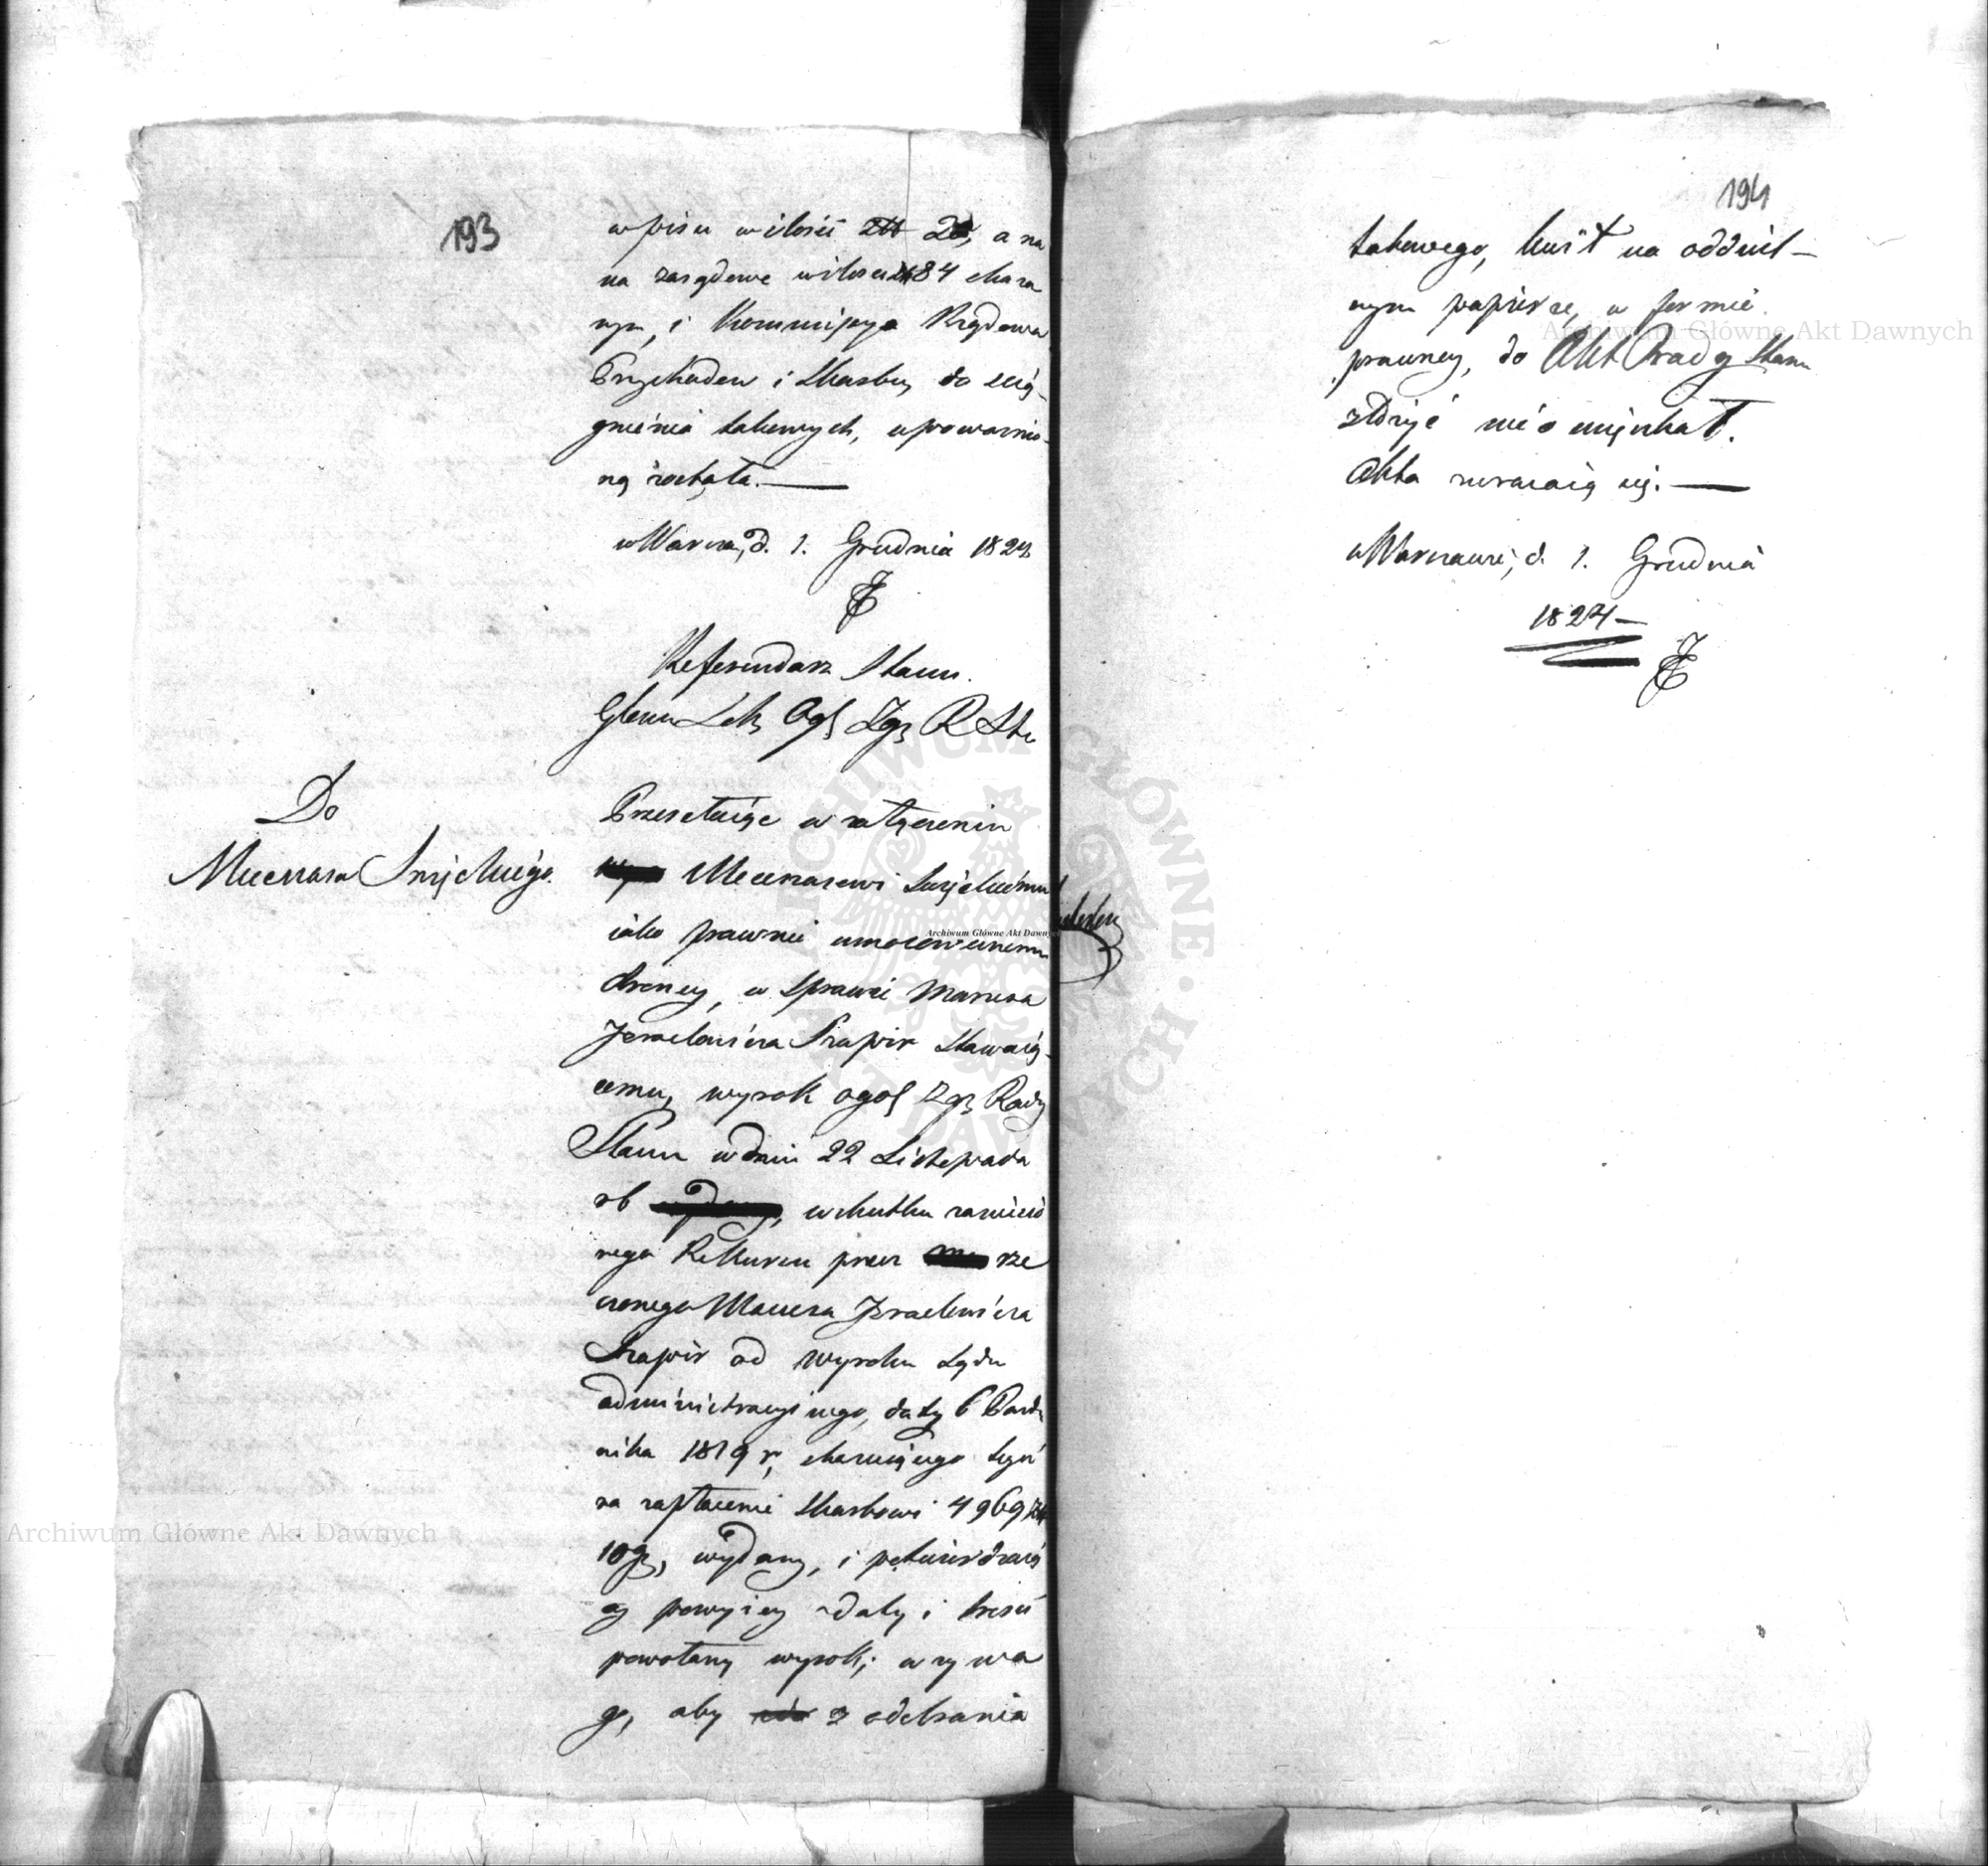 193
wpisu w ilości zł 20, a na
na zasądowe w ilości zł 84 skaza
nym, i Kommissya Rządowa
Przychodow i Skarbu, do ścią-
gnienia takowych, upoważnio-
ną została.
w Warsza, d. 1. Grudnia 1824
Referendarz Stanu.
Ogl Zgr R Stu
Do
Mecenasa
Przesełaiąc w załączeniu
Mecenasowi
iako prawnie umocowanemu
Obrońcy, w Sprawie
Izraelowicza Szapir stawaią-
cemu, wyrok ogol Zgr Rady
Stanu w dniu 22 Listopada
rb wskutku zanieśio
nego Rekursu przez rze
czonego Izraelowicza
Szapir od wyroku Sądu
administracyinego, daty 6 Paźdz
nika 1819 r, skazuiącego tegoż
na zapłacenie Skarbowi 4969 zł
10 gr, wydany, i potwierdzaią
cy powyżey z daty i treści
powołany wyrok; wzywa
go, aby z odebrania
194
takowego, kwit na oddziel-
nym papierze, w formie
prawney, do Akt Rady Stanu
złożyć nie omięszkał.
Akta zwracaią się.
w Warszawie, d. 1. Grudnia
1824
Archiwum Główne Akt Dawnych
Archiwum Główne Akt Dawnych
Archiwum Główne Akt Dawnych
ARCHIWUM GŁÓWNE AKT DAWNYCH